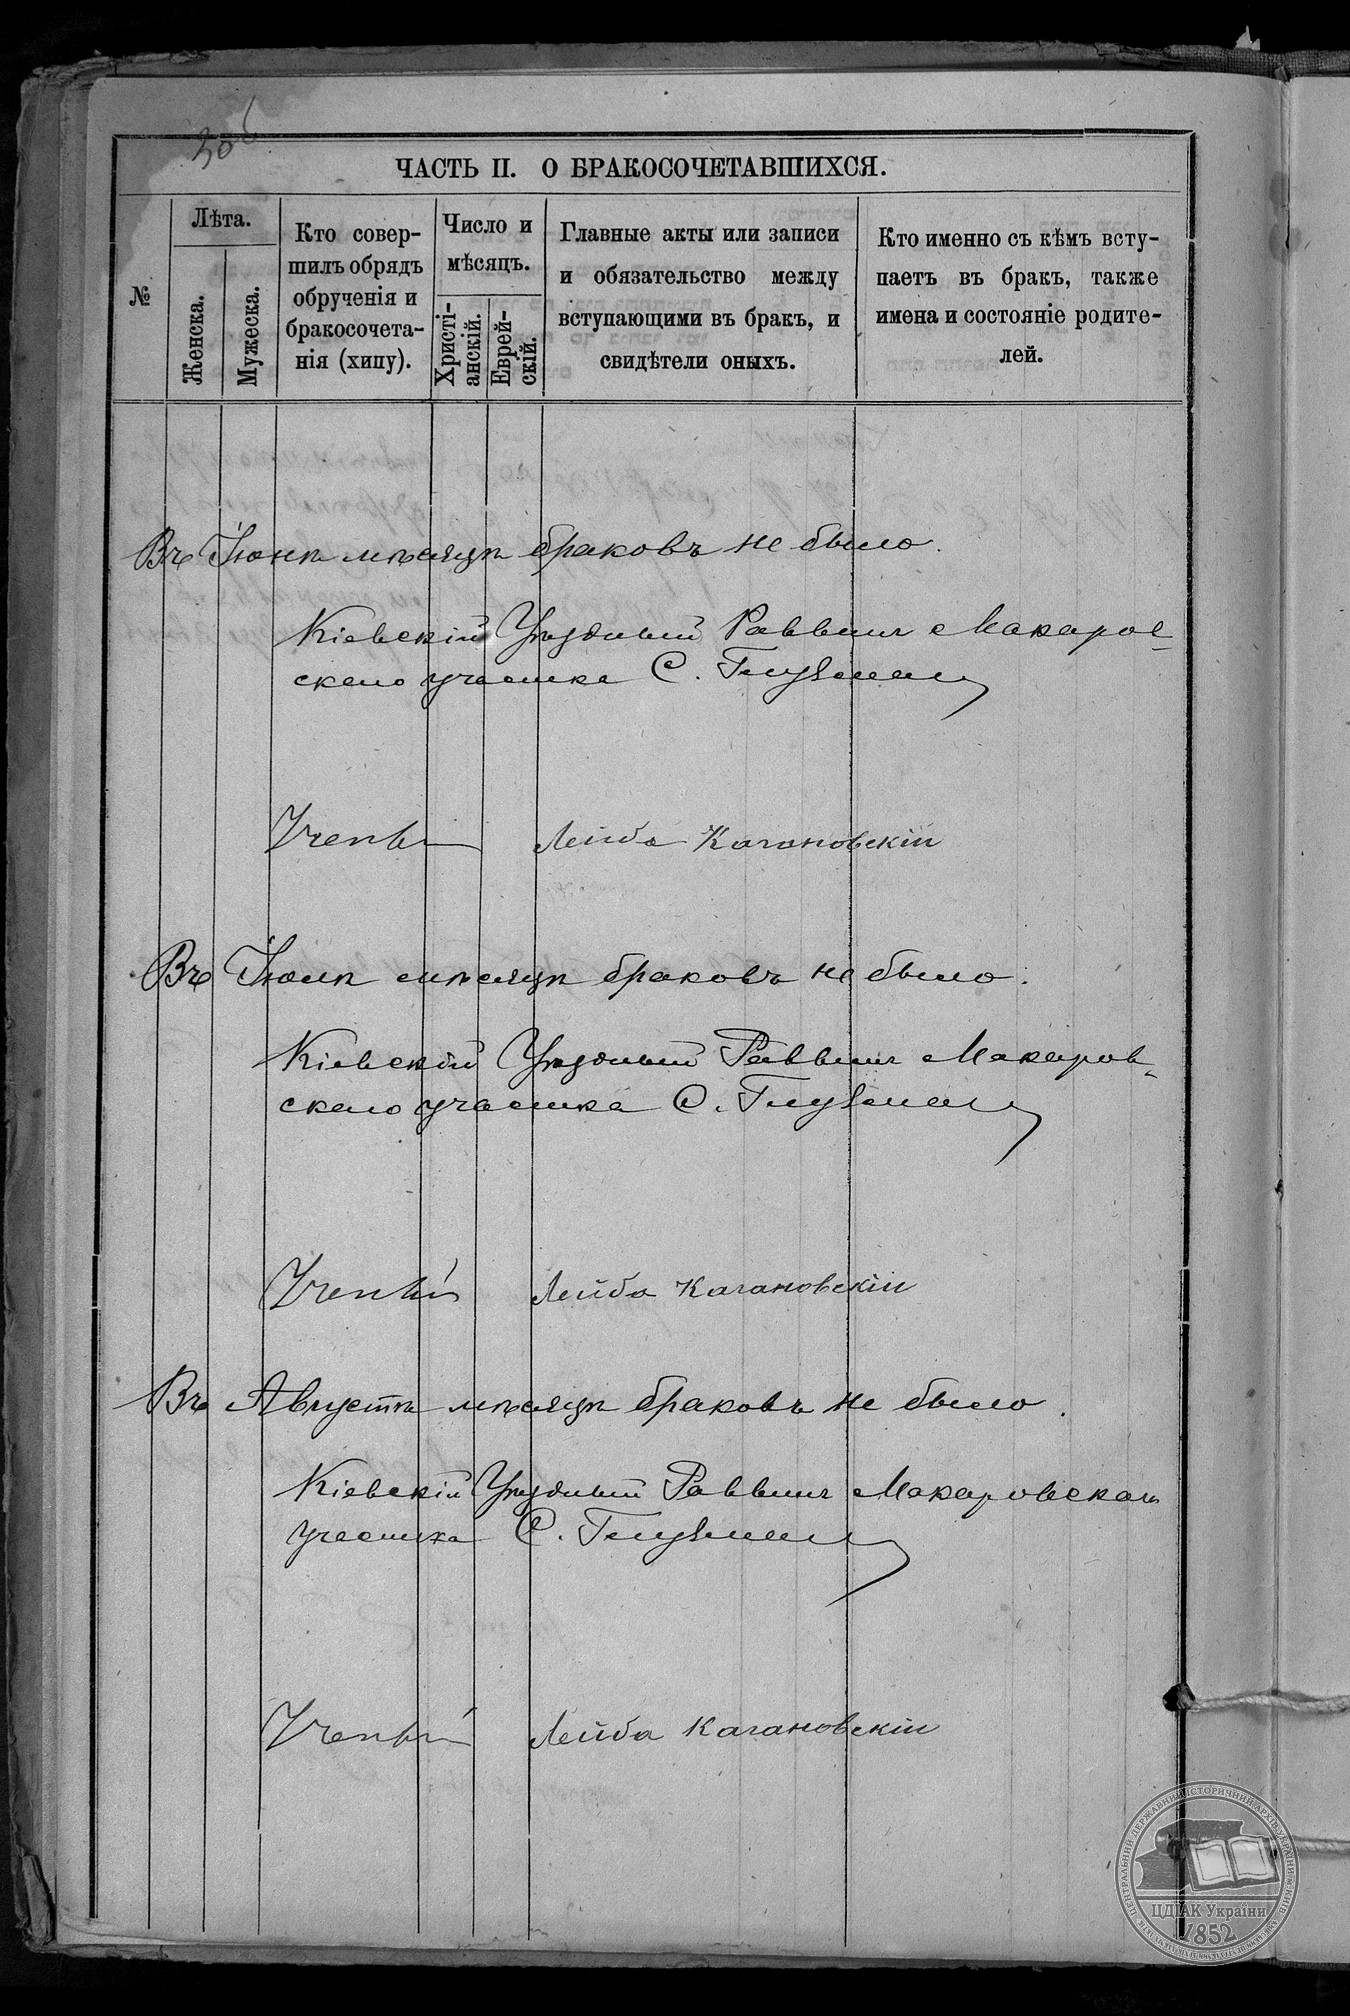 306
ЧАСТЬ II. О БРАКОСОЧЕТАВШИХСЯ.
№
Лѣта.
Женска.
Мужеска.
Кто совер-
шилъ обрядъ
обрученія и
бракосочета-
нія (хипу).
Число и
мѣсяцъ.
Христі-
анскій.
Еврей-
скій.
Главные акты или записи
и обязательство между
вступающими въ бракъ, и
свидѣтели оныхъ.
Кто именно съ кѣмъ всту-
паетъ въ бракъ, также
имена и состояніе родите-
лей.
Въ Іюнѣ мѣсяцѣ браковъ не было.
Кіевскій Уѣздный Раввинъ Макаров-
скаго участка С. Глузман
Учен Лейба Кагановскій
Въ Іюлѣ мѣсяцѣ браковъ не было.
Кіевскій Уѣздный Раввинъ Макаров-
скаго участка С. Глузман
Учен Лейба Кагановскій
Въ Августѣ мѣсяцѣ браковъ не было.
Кіевскій Уѣздный Раввинъ Макаровскаго
участка С. Глузман
Учен Лейба Кагановскій
ЦЕНТРАЛЬНИЙ ДЕРЖАВНИЙ ІСТОРИЧНИЙ АРХІВ УКРАЇНИ, М. КИЇВ
ЦДІАК України
1852